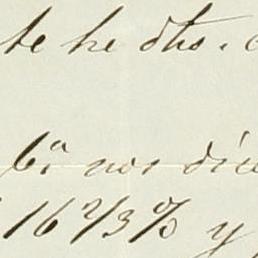 te he dhs.
6ª nos dice
16 2/3 % y